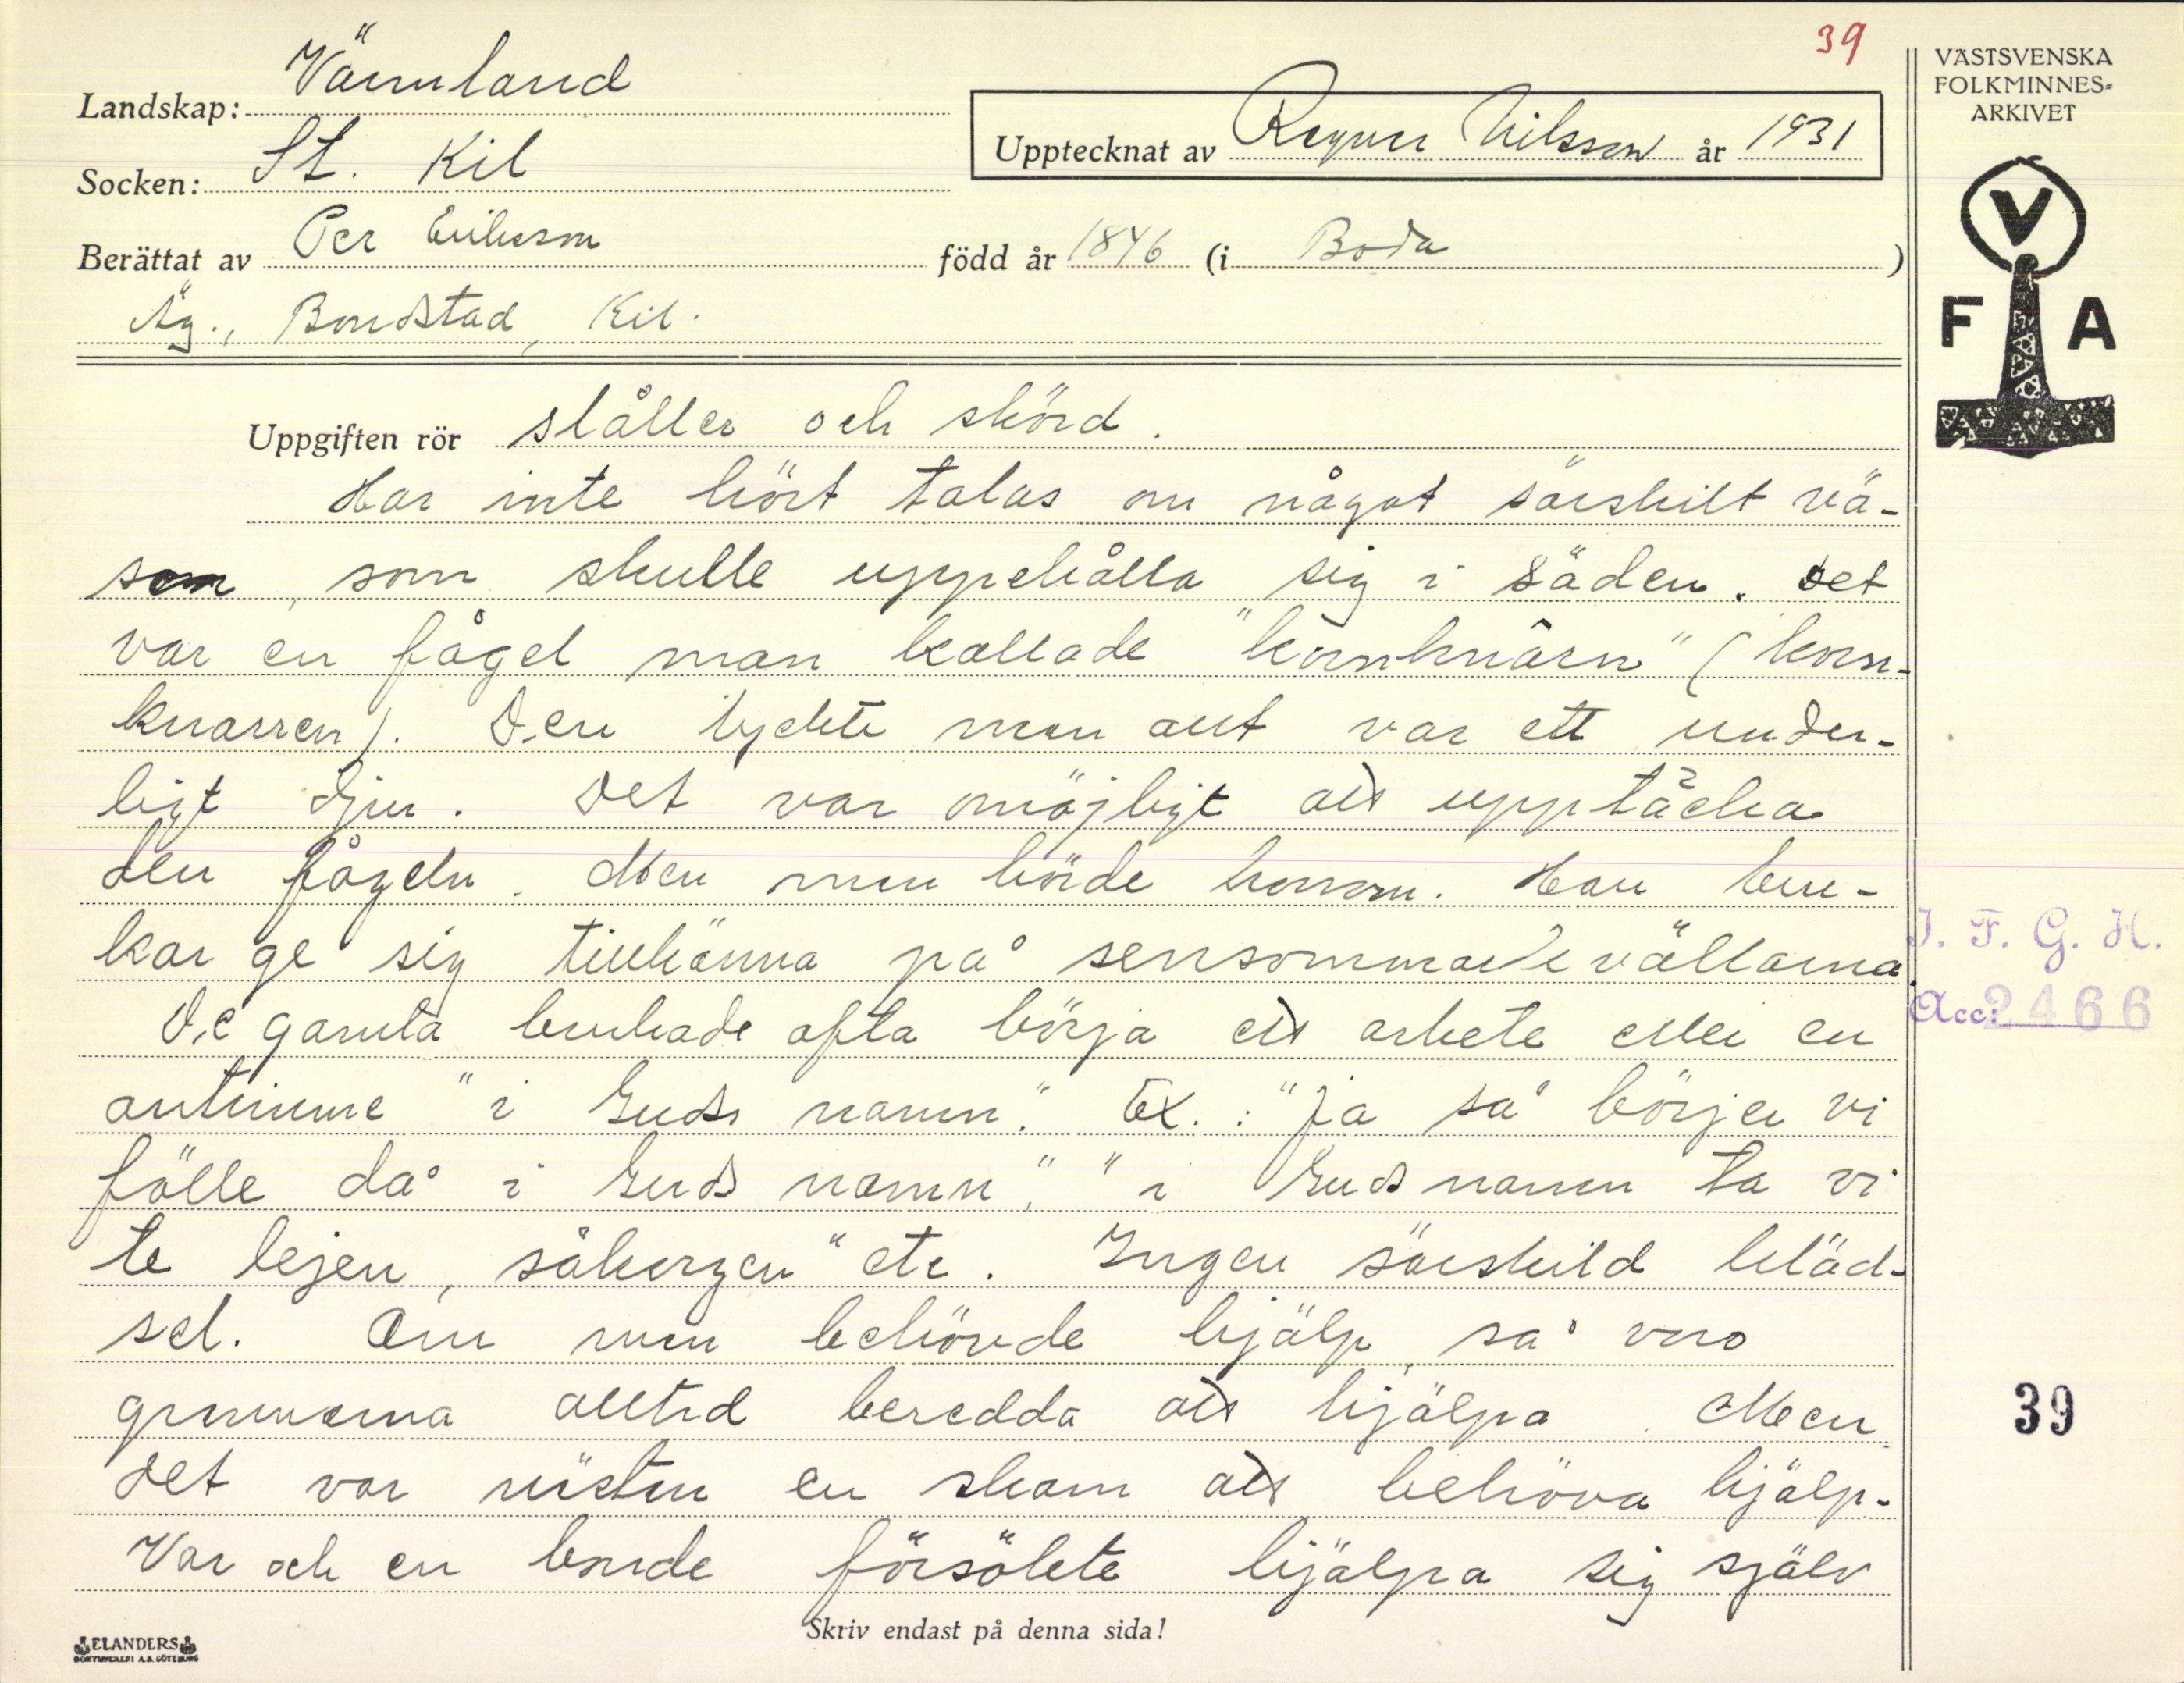 39
VÄSTSVENSKA
FOLKMINNES-
ARKIVET
Landskap: Värmland
Upptecknat av Ragnar Nilsson år 1931
Socken: St. Kil
Berättat av Per Eriksson född år 1846 (i Boda )
Äg., Bondstad, Kil.
V
F A
Uppgiften rör slåtter och skörd.
Har inte hört talas om något särskilt vä-
sen, som skulle uppehålla sig i säden. Det
var en fågel man kallade "kornknârn" (korn-
knarren). Den tyckte man allt var ett under-
ligt djur. Det var omöjligt att upptäcka
den fågeln. Men man hörde honom. Han bru-
kar ge sig tillkänna på sensommarkvällarna.
De gamla brukade ofta börja ett arbete eller en
"i Guds namn". Ex.: "Ja så börjer vi
fölle då i Guds namn", "i Guds namn ta vi
te lejen, såkorgen" etc. Ingen särskild kläd-
sel. Om man behövde hjälp, så voro
grannarna alltid beredda att hjälpa. Men
det var nästan en skam att behöva hjälp.
Var och en borde försökte hjälpa sig själv
I. F. G. H.
Acc: 2466
39
Skriv endast på denna sida!
ELANDERS
BOKTRYCKERI A.B. GÖTEBORG